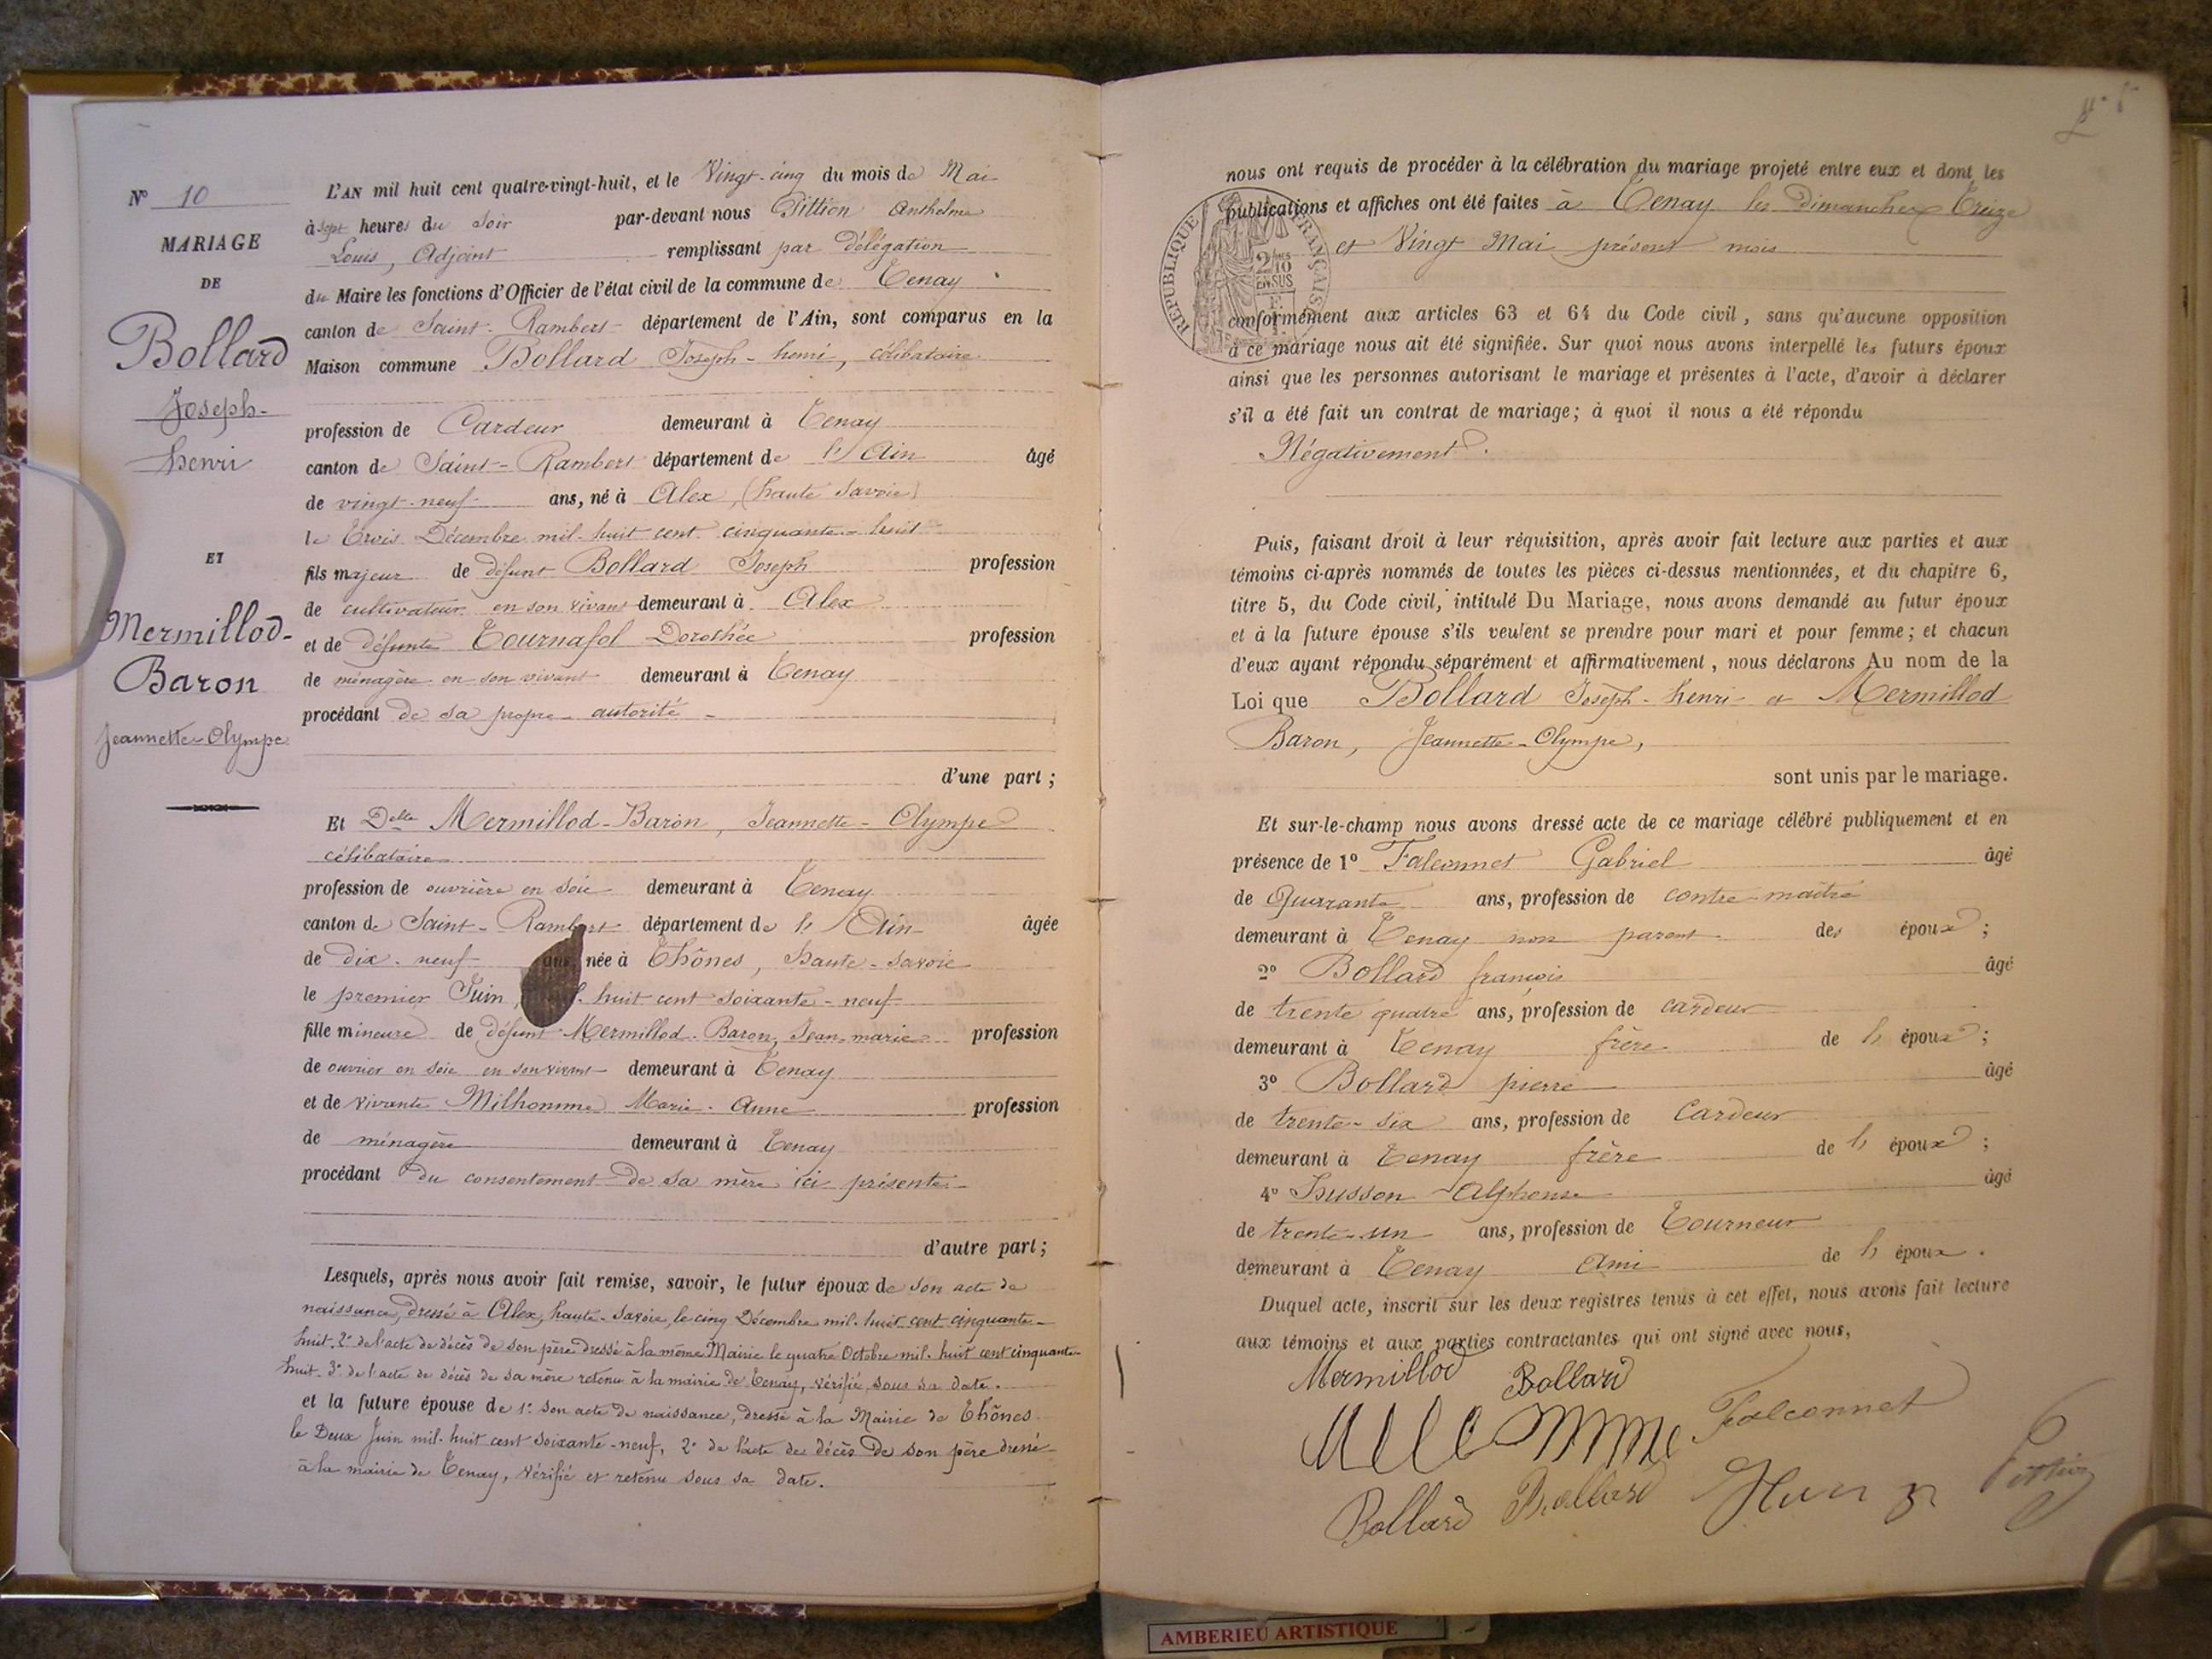 N° 10
MARIAGE
DE
Bollard
Joseph-
henri
ET
Mermillod-
Baron
Jeannette-Olympe
L'AN mil huit cent quatre-vingt-huit, et le Vingt-cinq du mois de Mai
à sept heures du soir par-devant nous Pittion Anthelme
Louis, Adjoint remplissant par délégation
du Maire les fonctions d'Officier de l'état civil de la commune de Tenay
canton de Saint-Rambert département de l'Ain, sont comparus en la
Maison commune Bollard Joseph-henri, célibataire
profession de Cardeur demeurant à Tenay
canton de Saint-Rambert département de l'Ain âgé
de vingt-neuf ans, né à Alex, (haute Savoie)
le Trois Décembre mil-huit cent cinquante-huit
fils majeur de défunt Bollard Joseph profession
de cultivateur en son vivant demeurant à Alex
et de défunte Tournafol Dorothée profession
de ménagère en son vivant demeurant à Tenay
procédant de sa propre autorité
d'une part ;
Et Delle Mermillod-Baron, Jeannette-Olympe
célibataire
profession de ouvrière en soie demeurant à Tenay
canton de Saint-Rambert département de l'Ain âgée
de dix-neuf ans, née à Thônes, Haute-Savoie
le premier Juin, huit cent soixante-neuf
fille mineure de défunt Mermillod-Baron, Jean-marie profession
de ouvrier en soie en son vivant demeurant à Tenay
et de vivante Milhomme Marie-Anne profession
de ménagère demeurant à Tenay
procédant du consentement de sa mère ici présente
d'autre part ;
Lesquels, après nous avoir fait remise, savoir, le futur époux de son acte de
naissance, dressé à Alex, haute-Savoie, le cinq Décembre mil-huit cent cinquante-
huit. 2° de l'acte de décès de son père dressé à la même Mairie le quatre Octobre mil-huit cent cinquante-
huit. 3° de l'acte de décès de sa mère retenu à la mairie de Tenay, vérifié, sous sa date.
et la future épouse de 1° son acte de naissance, dressé à la Mairie de Thônes
le Deux Juin mil-huit cent soixante-neuf, 2° de l'acte de décès de son père dressé
à la mairie de Tenay, vérifié et retenu sous sa date.
nous ont requis de procéder à la célébration du mariage projeté entre eux et dont les
publications et affiches ont été faites à Tenay les Dimanches Treize
et Vingt Mai présent mois
RÉPUBLIQUE FRANÇAISE
2/10
EN SUS
conformément aux articles 63 et 64 du Code civil, sans qu'aucune opposition
à ce mariage nous ait été signifiée. Sur quoi nous avons interpellé les futurs époux
ainsi que les personnes autorisant le mariage et présentes à l'acte, d'avoir à déclarer
s'il a été fait un contrat de mariage ; à quoi il nous a été répondu
Négativement.
Puis, faisant droit à leur réquisition, après avoir fait lecture aux parties et aux
témoins ci-après nommés de toutes les pièces ci-dessus mentionnées, et du chapitre 6,
titre 5, du Code civil, intitulé Du Mariage, nous avons demandé au futur époux
et à la future épouse s'ils veulent se prendre pour mari et pour femme ; et chacun
d'eux ayant répondu séparément et affirmativement, nous déclarons Au nom de la
Loi que Bollard Joseph-henri et Mermillod
Baron, Jeannette-Olympe,
sont unis par le mariage.
Et sur-le-champ nous avons dressé acte de ce mariage célébré publiquement et en
présence de 1° Falconnet Gabriel âgé
de Quarante ans, profession de contre-maître
demeurant à Tenay non parent des époux ;
2° Bollard françois âgé
de trente quatre ans, profession de cardeur
demeurant à Tenay frère de l'époux ;
3° Bollard pierre âgé
de trente-six ans, profession de Cardeur
demeurant à Tenay frère de l'époux ;
4° Husson Alphonse âgé
de trente-un ans, profession de Tourneur
demeurant à Tenay Ami de l'époux.
Duquel acte, inscrit sur les deux registres tenus à cet effet, nous avons fait lecture
aux témoins et aux parties contractantes qui ont signé avec nous,
Mermillod Bollard
Falconnet
Bollard Bollard Pittion
AMBERIEU ARTISTIQUE